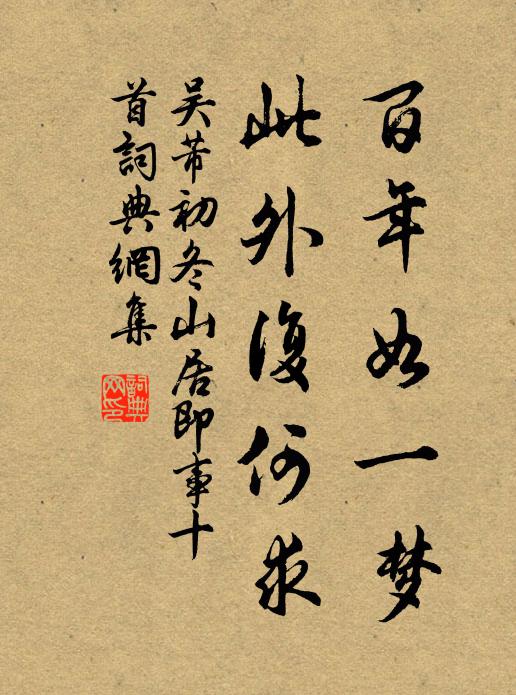 百年如一梦
此外復何求
吴芾初冬山居即事十
首詞典網集
詞典网印